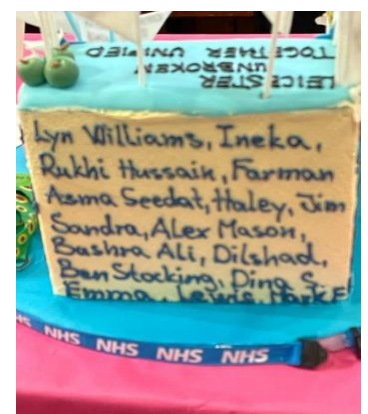 LEICESTER
UNBROKEN
TOGETHER UNIFIED
Lyn Williams, Ineka,
Rukhi Hussain, Farman
Asma Seedat, Haley, Jim
Sandra, Alex Mason,
Bushra Ali, Dilshad,
Ben Stocking, Dina S,
Emma, Lewis, Mark E
NHS NHS NHS NHS NHS